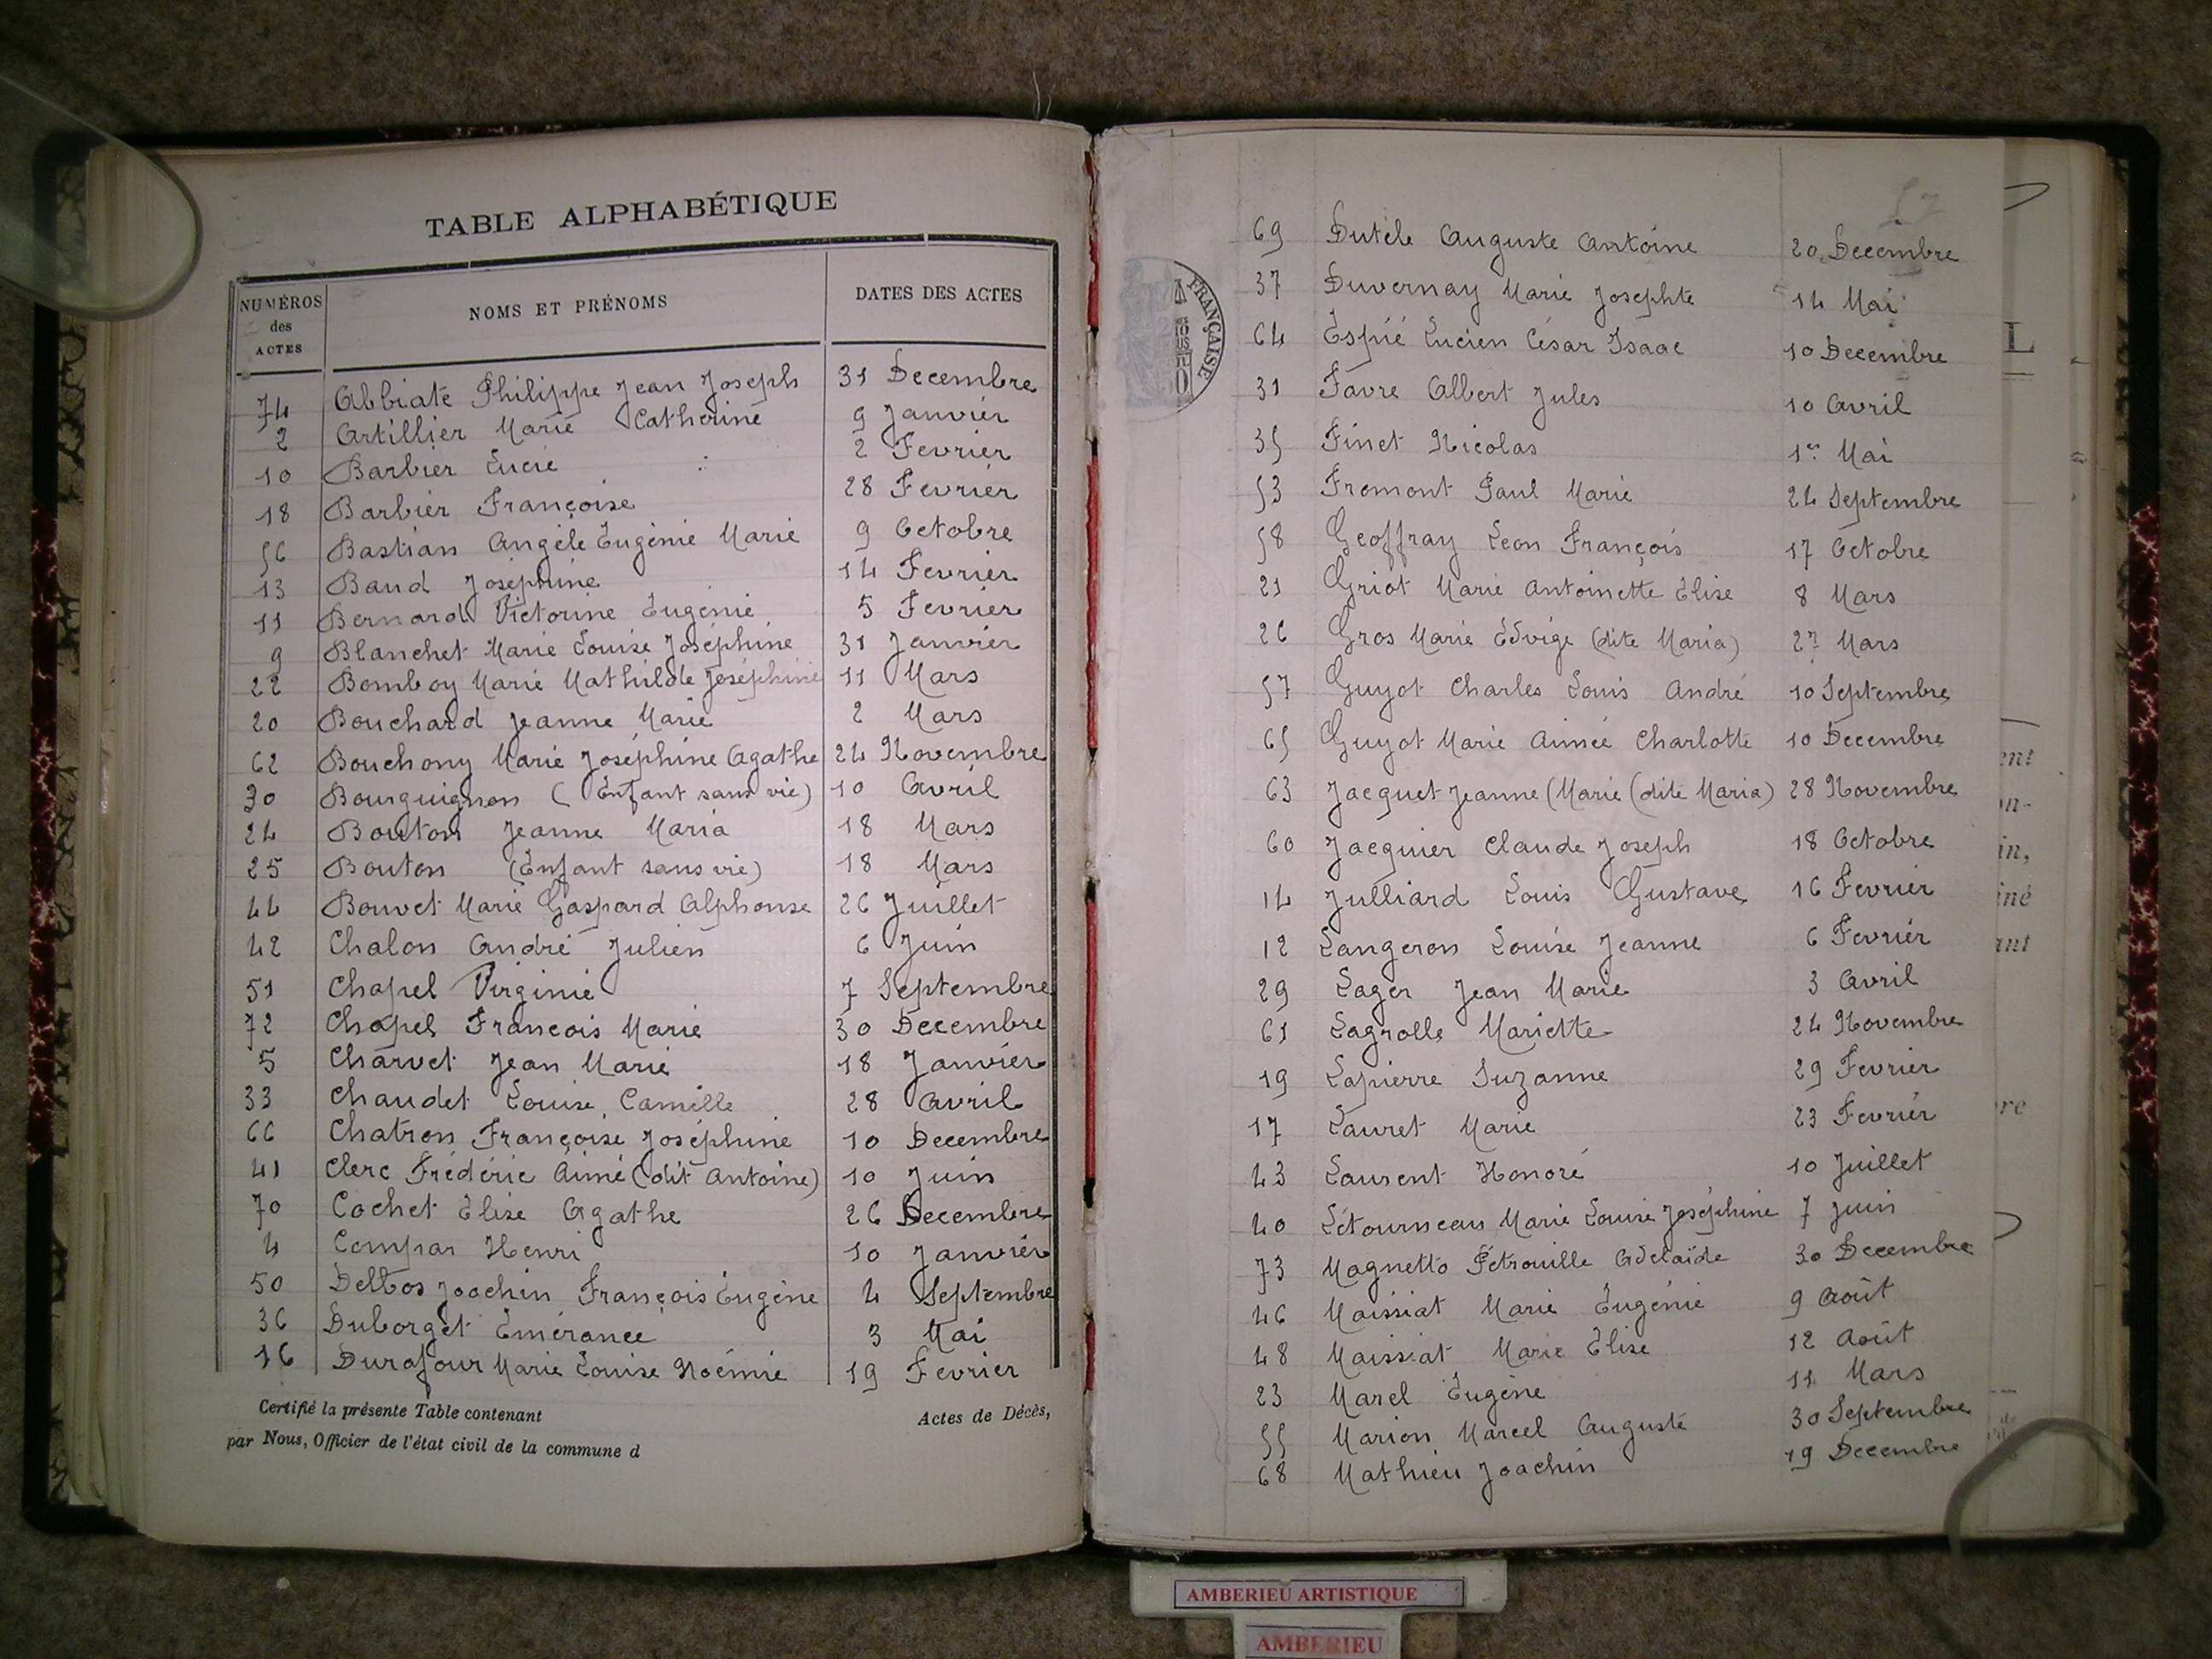 TABLE ALPHABÉTIQUE
NUMÉROS des ACTES NOMS ET PRÉNOMS DATES DES ACTES
74 Abbiate Philippe Jean Joseph 31 Decembre
2 Artillier Marie Catherine 9 Janvier
10 Barbier Lucie 2 Fevrier
18 Barbier Françoise 28 Fevrier
56 Bastian Angèle Eugénie Marie 9 Octobre
13 Baud Joséphine 14 Fevrier
11 Bernard Victorine Eugénie 5 Fevrier
9 Blanchet Marie Louise Joséphine 31 Janvier
22 Bomboy Marie Mathilde Joséphine 11 Mars
20 Bouchard Jeanne Marie 2 Mars
62 Bouchony Marie Joséphine Agathe 24 Novembre
30 Bourguignon (Enfant sans vie) 10 Avril
24 Bouton Jeanne Maria 18 Mars
25 Bouton (Enfant sans vie) 18 Mars
44 Bouvet Marie Gaspard Alphonse 26 Juillet
42 Chalon André Julien 6 Juin
51 Chapel Virginie 7 Septembre
72 Chapel François Marie 30 Decembre
5 Charvet Jean Marie 18 Janvier
33 Chaudet Louise Camille 28 Avril
66 Chatron Françoise Joséphine 10 Decembre
41 Clerc Frédéric Aimé (dit Antoine) 10 Juin
70 Cochet Elise Agathe 26 Decembre
4 Compar Henri 10 Janvier
50 Delbos Joachin François Eugène 4 Septembre
36 Duborget Emérance 3 Mai
16 Durafour Marie Louise Noémie 19 Fevrier
Certifié la présente Table contenant Actes de Décès,
par Nous, Officier de l'état civil de la commune d
FRANÇAISE
69 Dutèle Auguste Antoine 20 Decembre
37 Duvernay Marie Josephte 14 Mai
64 Espié Lucien César Isaac 10 Decembre
31 Favre Albert Jules 10 Avril
35 Finet Nicolas 1er Mai
53 Fromont Paul Marie 24 Septembre
58 Geoffray Leon François 17 Octobre
21 Griot Marie Antoinette Elise 8 Mars
26 Gros Marie Edvige (dite Maria) 27 Mars
57 Guyot Charles Louis André 10 Septembre
65 Guyot Marie Aimée Charlotte 10 Decembre
63 Jacquet Jeanne (Marie (dite Maria) 28 Novembre
60 Jacquier Claude Joseph 18 Octobre
14 Julliard Louis Gustave 16 Fevrier
12 Langeron Louise Jeanne 6 Fevrier
29 Lager Jean Marie 3 Avril
61 Lagrolle Mariette 24 Novembre
19 Lapierre Suzanne 29 Fevrier
17 Lauret Marie 23 Fevrier
43 Laurent Honoré 10 Juillet
40 Létourneau Marie Louise Joséphine 7 Juin
73 Magnetto Pétrouille Adelaïde 30 Decembre
46 Maissiat Marie Eugénie 9 Août
48 Maissiat Marie Elise 12 Août
23 Marel Eugène 11 Mars
55 Marion Marcel Auguste 30 Septembre
68 Mathieu Joachin 19 Decembre
AMBERIEU ARTISTIQUE
AMBERIEU